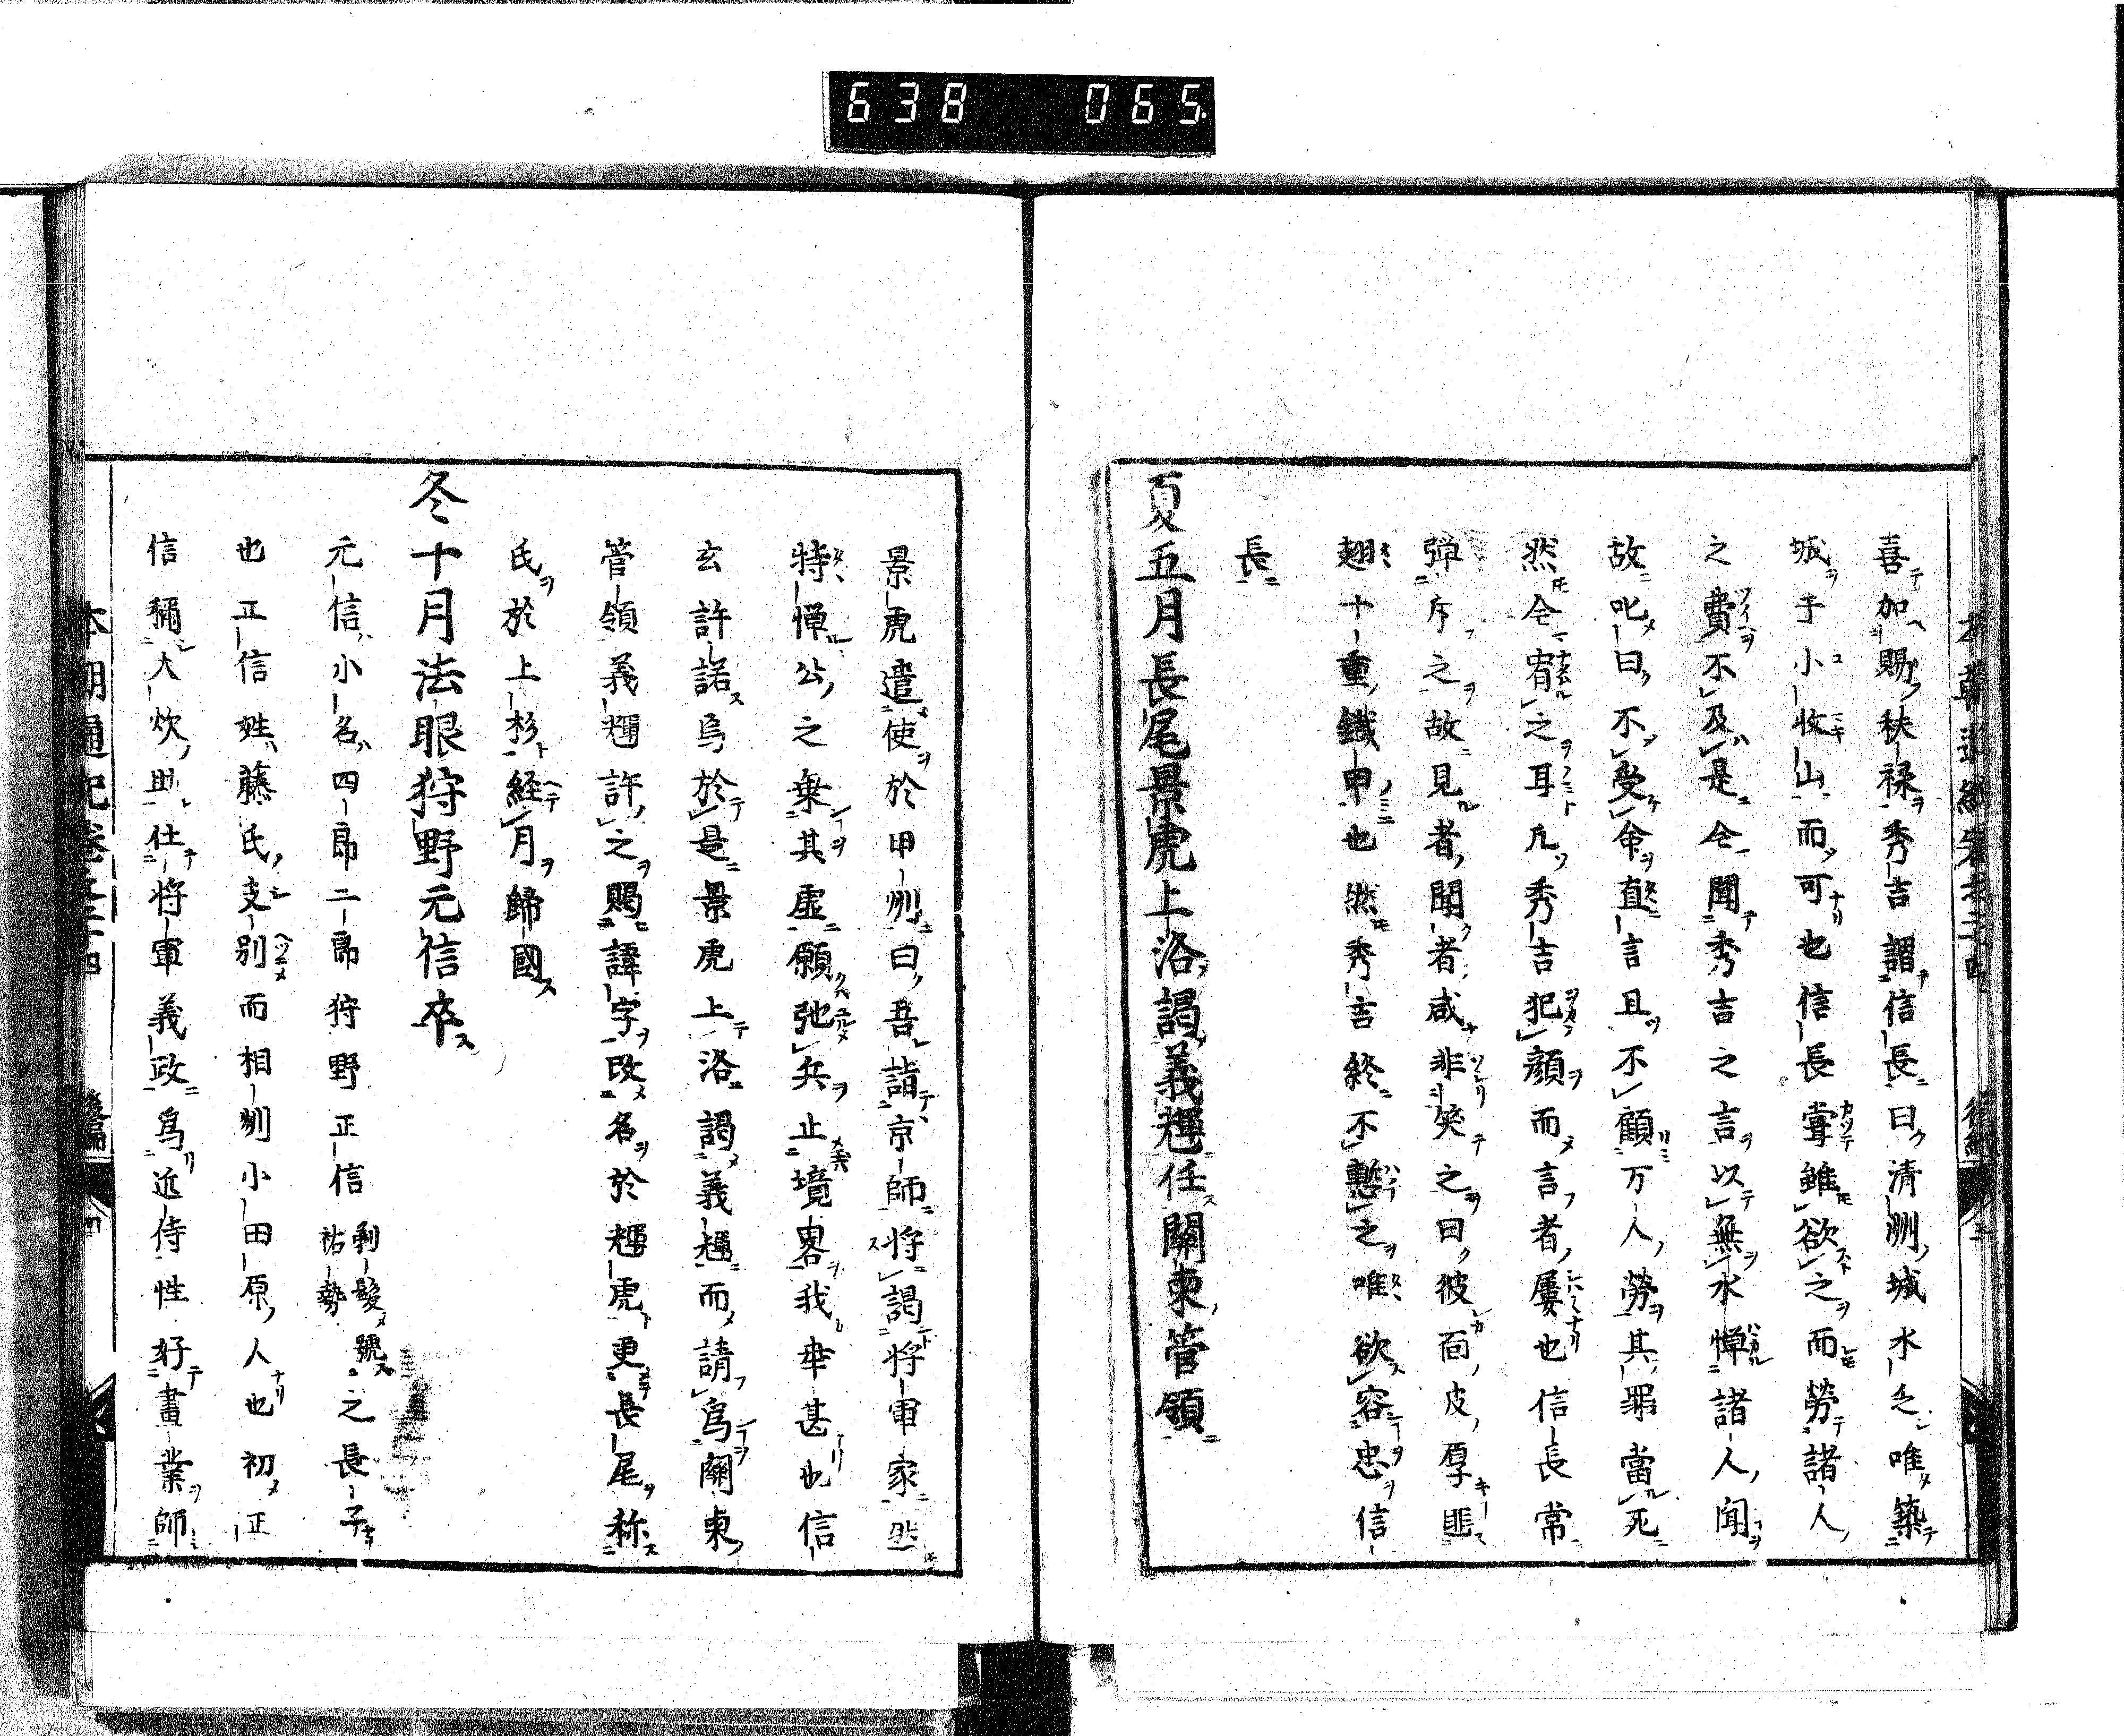 638 065
喜加賜秩禄秀吉謂信長曰清洲城水乏唯築
城于小牧山而可也信長嘗雖欲之而勞諸人
之費不及是仝聞秀吉之言以無水憚諸人聞
故叱曰不受命直言且不顧万人勞其罪當死
然仝宥之耳凡秀吉犯顔而言者屢也信長常
弾斥之故見者聞者咸非笑之曰彼面皮厚匪
翅十重鐵甲也然秀吉終不慙之唯欲容忠信
長
夏五月長尾景虎上洛謁義輝任關東管領
景虎遣使於甲州曰吾詣京師将謁将軍家然
特憚公之乗其虚願弛兵止境畧我幸甚也信
玄許諾焉於是景虎上洛謁義輝而請爲關東
管領義輝許之賜諱字改名於輝虎更長尾称
氏於上杉経月歸國
冬十月法眼狩野元信卒
元信小名四郎二郎狩野正信剃髮號祐勢之長子
也正信姓藤氏支別而相州小田原人也初正
信稱大炊助仕将軍義政爲近侍性好畫業師
本朝通紀卷之二十四 後編 四